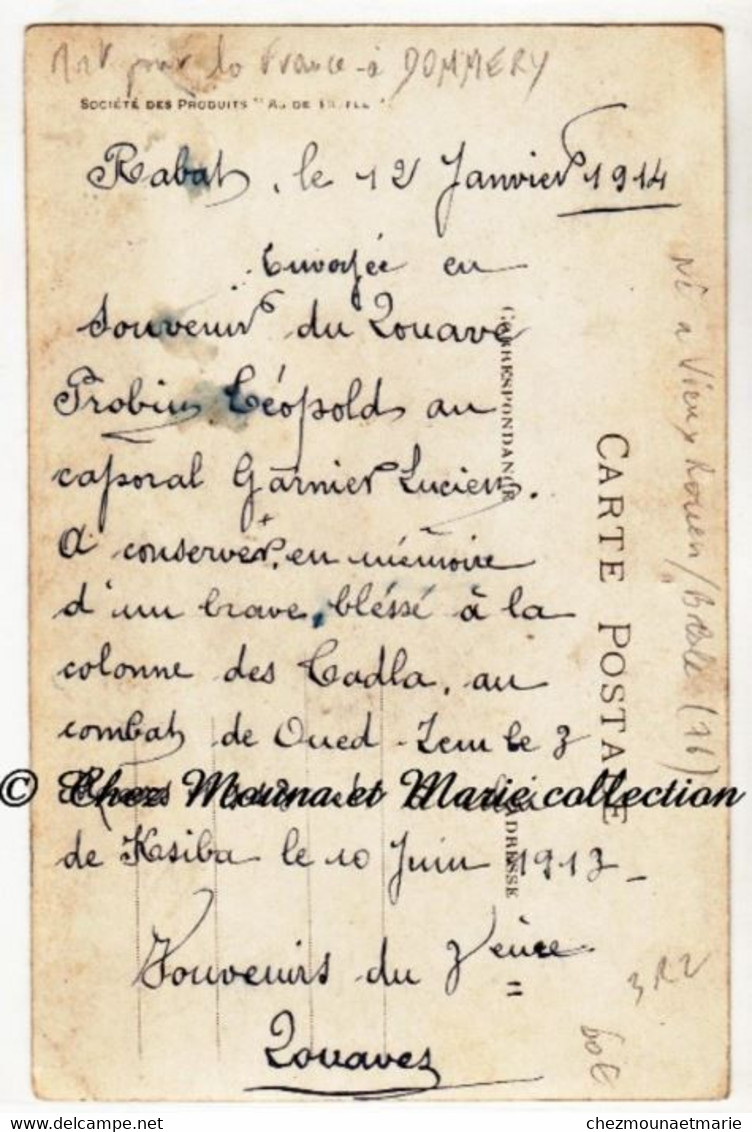 pour la France à DOMMERY
SOCIÉTÉ DES PRODUITS "AS DE TRÈFLE"
Rabat, le 12 Janvier 1914
Envoyée en
souvenir du Zouave
Probin Léopold au
caporal Garnier Lucien.
A conserver, en mémoire
d'un brave, bléssé à la
colonne des Tadla, au
combat de Oued-Zem le 3
© Chez Mouna et Marie collection
de Kasiba le 10 Juin 1913 -
Souvenirs du 3eme
Zouaves
CORRESPONDANCE
CARTE POSTALE
ADRESSE
Né a Vieux Rouen/Bresle (76)
3R2
60E
chezmounaetmarie.com